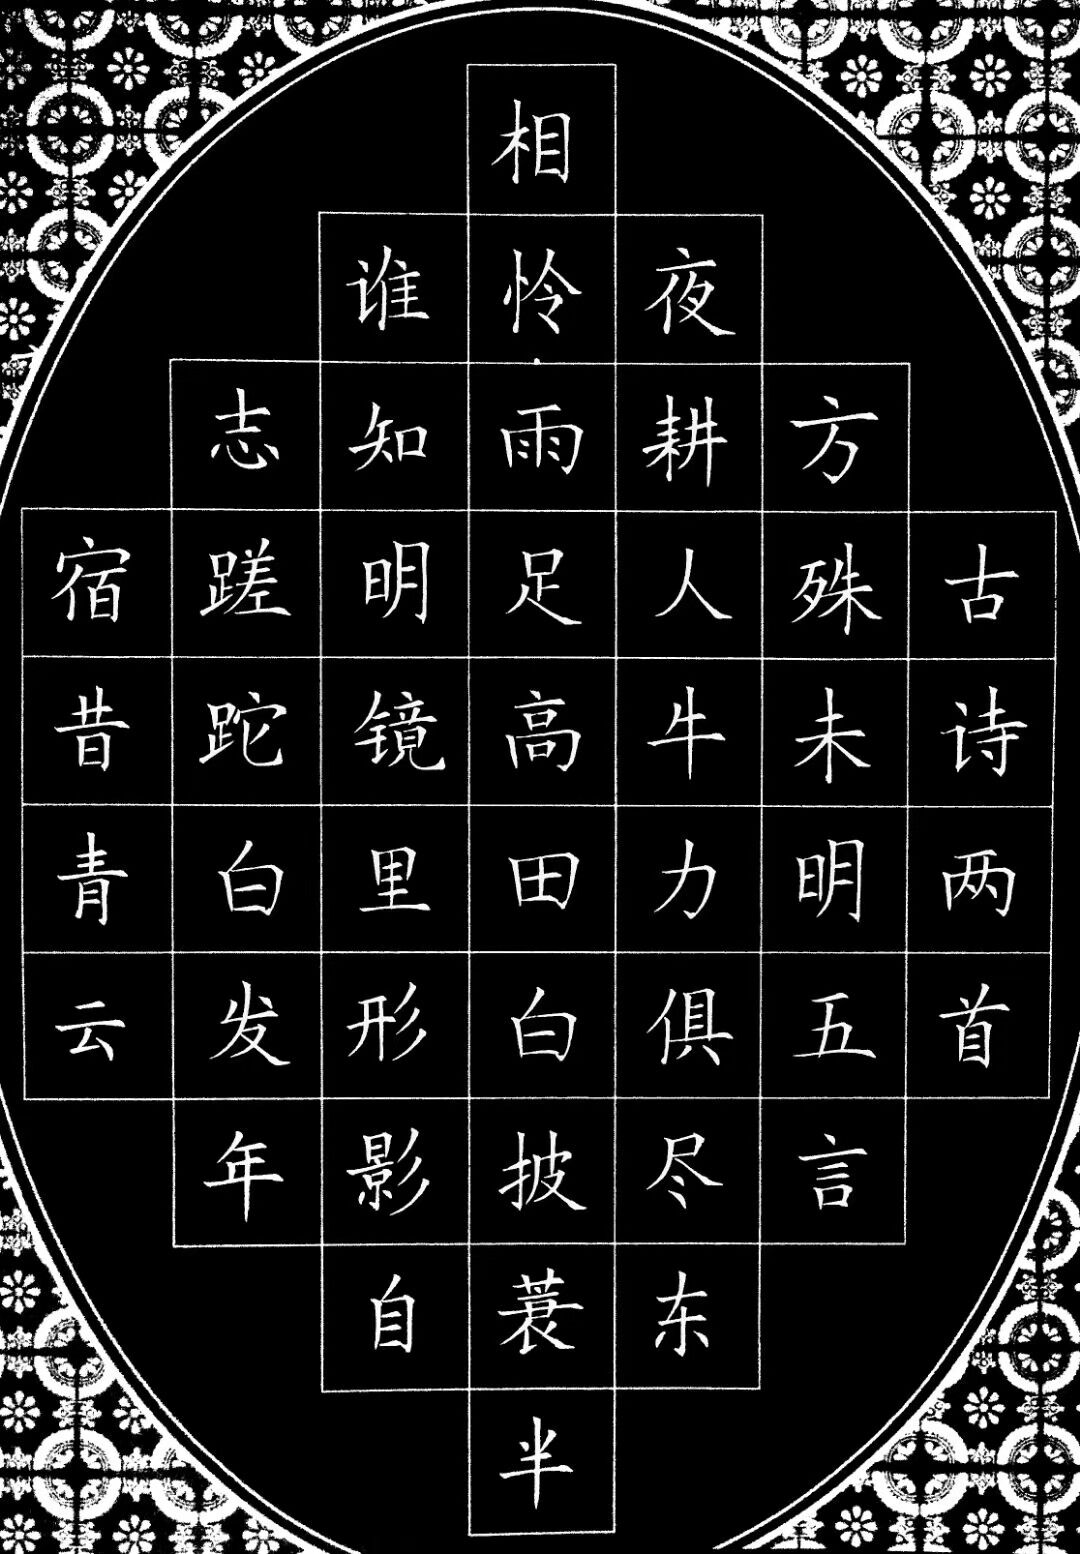 宿昔青云
志蹉跎白发年
谁知明镜里形影自
相怜雨足高田白披蓑半
夜耕人牛力俱尽东
方殊未明五言
古诗两首